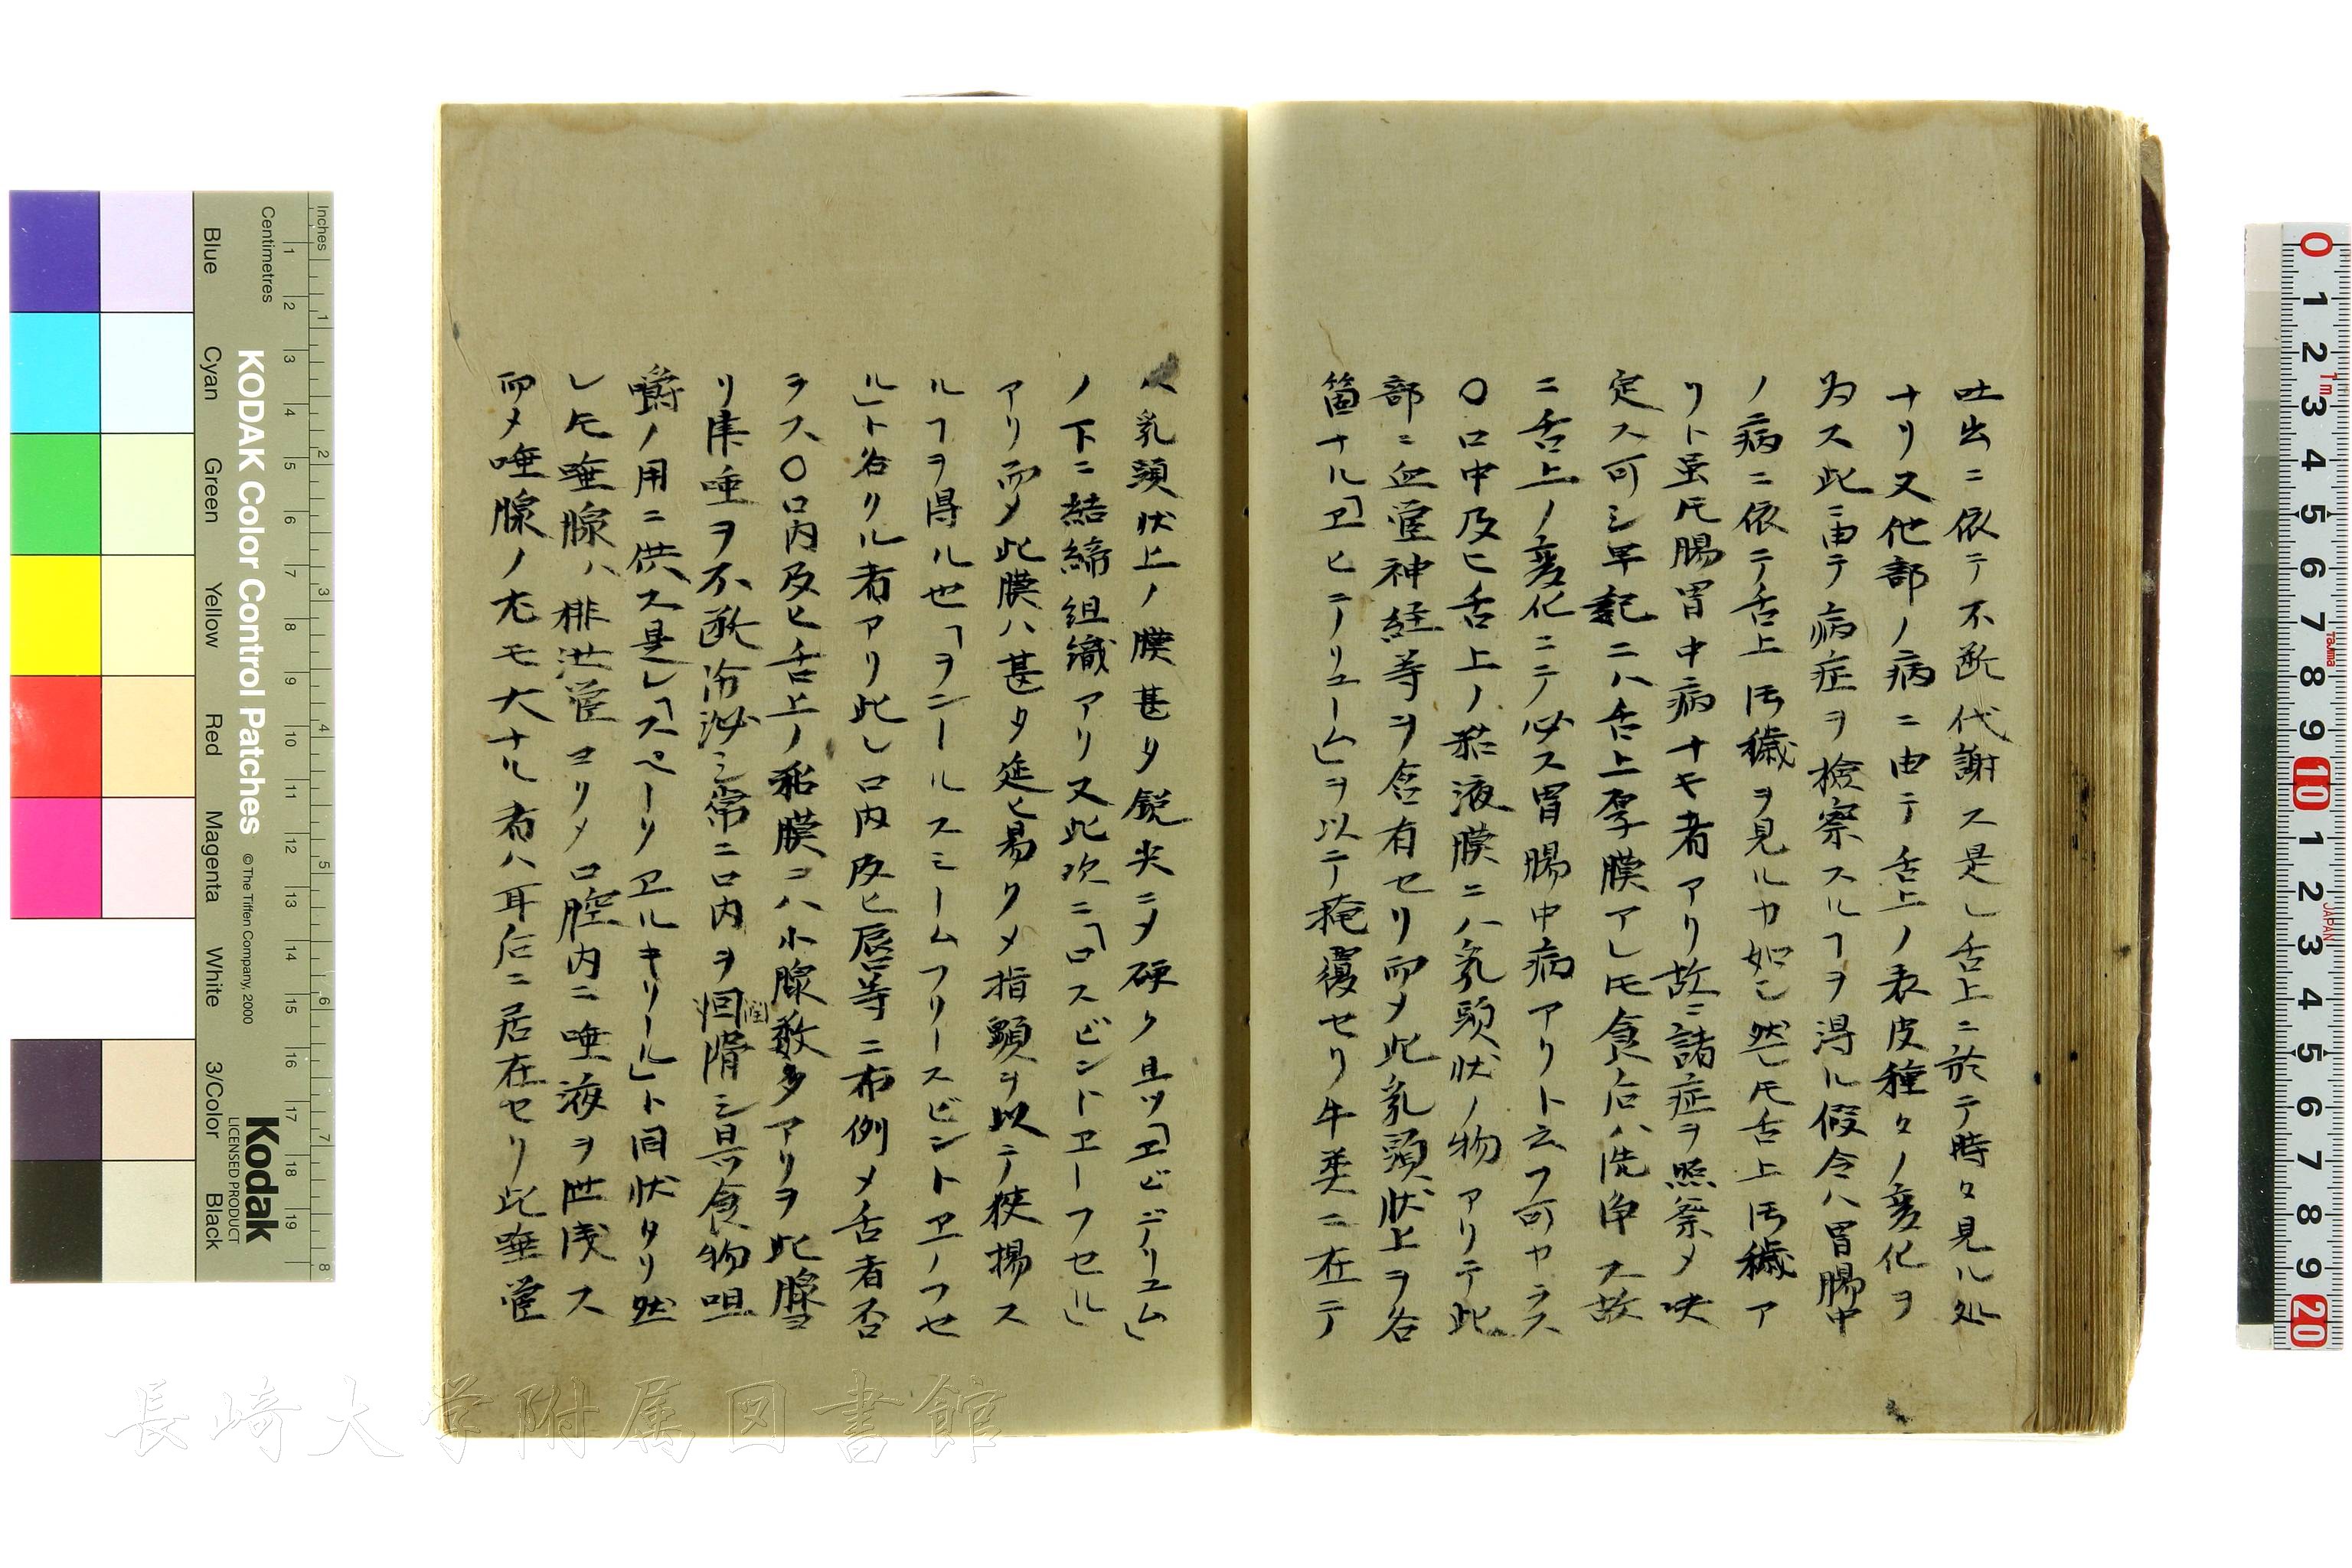 吐出ニ依テ不断代謝ス是レ舌上ニ於テ時々見ル処
ナリ又他部ノ病ニ由テ舌上ノ表皮種々ノ変化ヲ
為ス此ニ由テ病症ヲ検察スルヿヲ得ル假令ハ胃腸中
ノ病ニ依テ舌上汚穢ヲ見ルカ如シ然レ𪜈舌上汚穢ア
リト虽𪜈腸胃中病ナキ者アリ故ニ諸症ヲ照察メ决
定ス可シ早
ニハ舌上厚膜アレ𪜈食后ハ洗浄ス故
ニ舌上ノ変化ニテ必ス胃腸中病アリト云フ可ヤラス
〇口中及ヒ舌上ノ粘液膜ニハ乳頭状ノ物アリテ此
部ニ血管神経等ヲ含有セリ而メ此乳頭状上ヲ各
箇ナル「ヱヒテリユーム」ヲ以テ掩覆セリ牛类ニ在テ
ハ乳頭状上ノ膜甚タ鋭尖ニメ硬ク且ツ「ヱビデリユム」
ノ下ニ結締組織アリ又此次ニ「ロスビンドヱーフセル」
アリ而メ此膜ハ甚タ延ヒ易クメ指頭ヲ以テ狭揚ス
ルヿヲ得ル也「ヲニールスミームフリースビントヱーフセ
ル」ト名クル者アリ此レ口内及ヒ唇等ニ布例メ舌者否
ヲス〇口内及ヒ舌上ノ粘膜ニハ小腺数多アリヲ此腺ヨ
リ津唾ヲ不断分泌シ常ニ口内ヲ洄滑シ且食物咀
潤
嚼ノ用ニ供ス是レ「スペーリヱルキリール」ト同状タリ然
レ𪜈唾腺ハ排泄管ヨリメ口腔内ニ唾液ヲ泄洩ス
而メ唾腺ノ尤モ大ナル者ハ耳后ニ居在セリ此唾管
Inches
Centimetres
KODAK Color Control Patches
© The Tiffen Company, 2000
Kodak
LICENSED PRODUCT
Blue
Cyan
Green
Yellow
Red
Magenta
White
3/Color
Black
1 2 3 4 5 6 7 8 9 10 11 12 13 14 15 16 17 18 19
1 2 3 4 5 6 7 8
0 1 2 3 4 5 6 7 8 9 10 1 2 3 4 5 6 7 8 9 20
1m
Tajima
JAPAN
長崎大学附属図書館